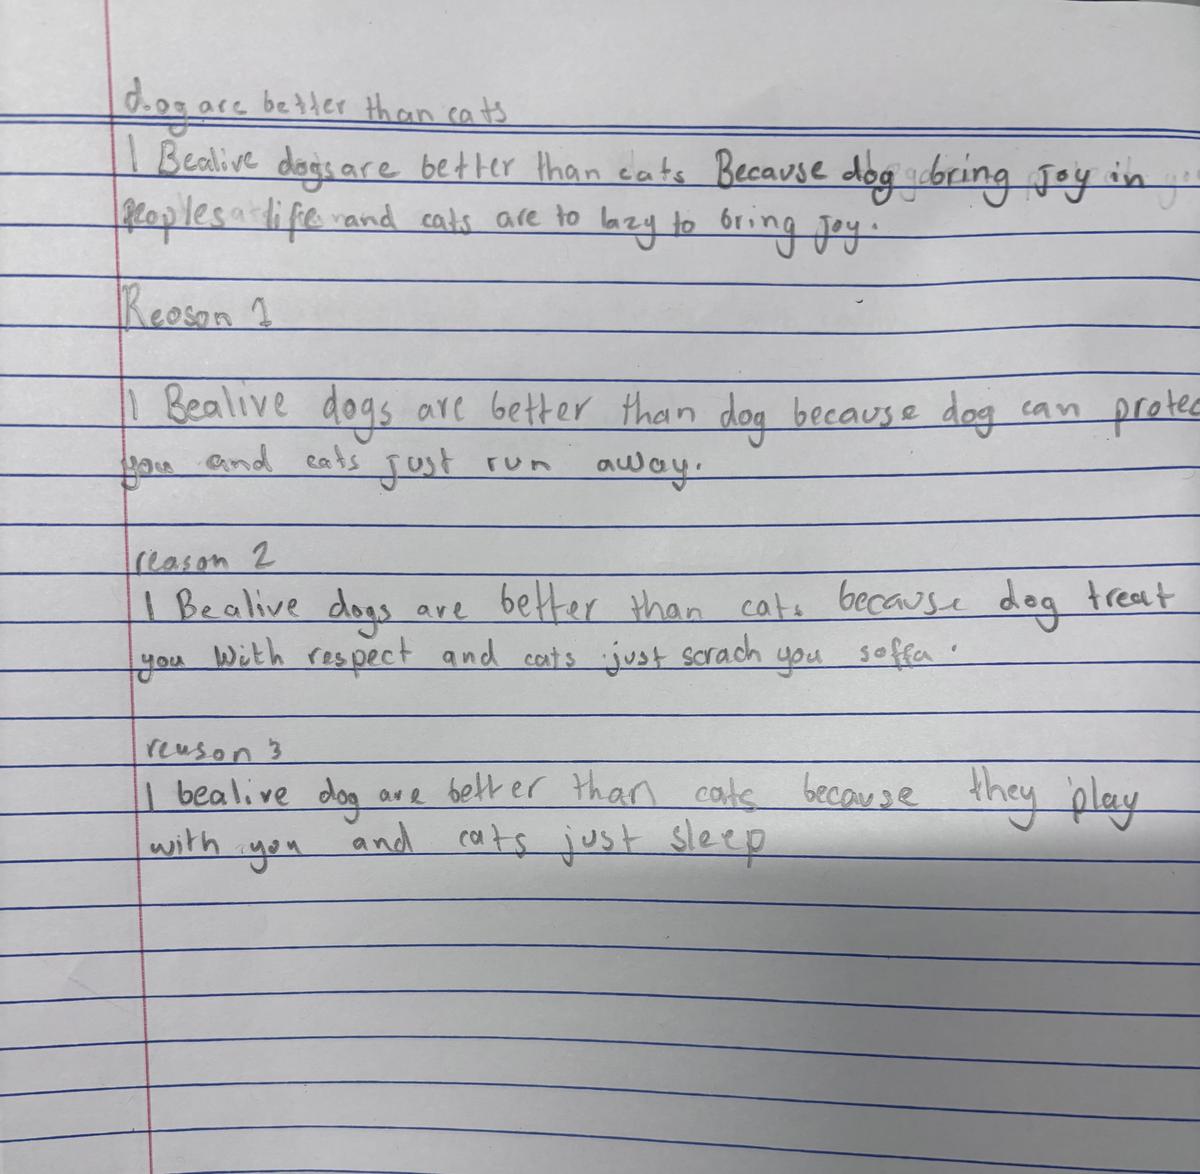 dog are better than cats
I Bealive dogs are better than cats Because dog bring joy in
peoples life and cats are to lazy to bring joy.
Reoson 1
I Bealive dogs are better than dog because dog can protec
you and cats just run away.
reason 2
I Bealive dogs are better than cats because dog treat
you With respect and cats just scrach you soffa.
reason 3
I bealive dog are better than cats because they play
with you and cats just sleep